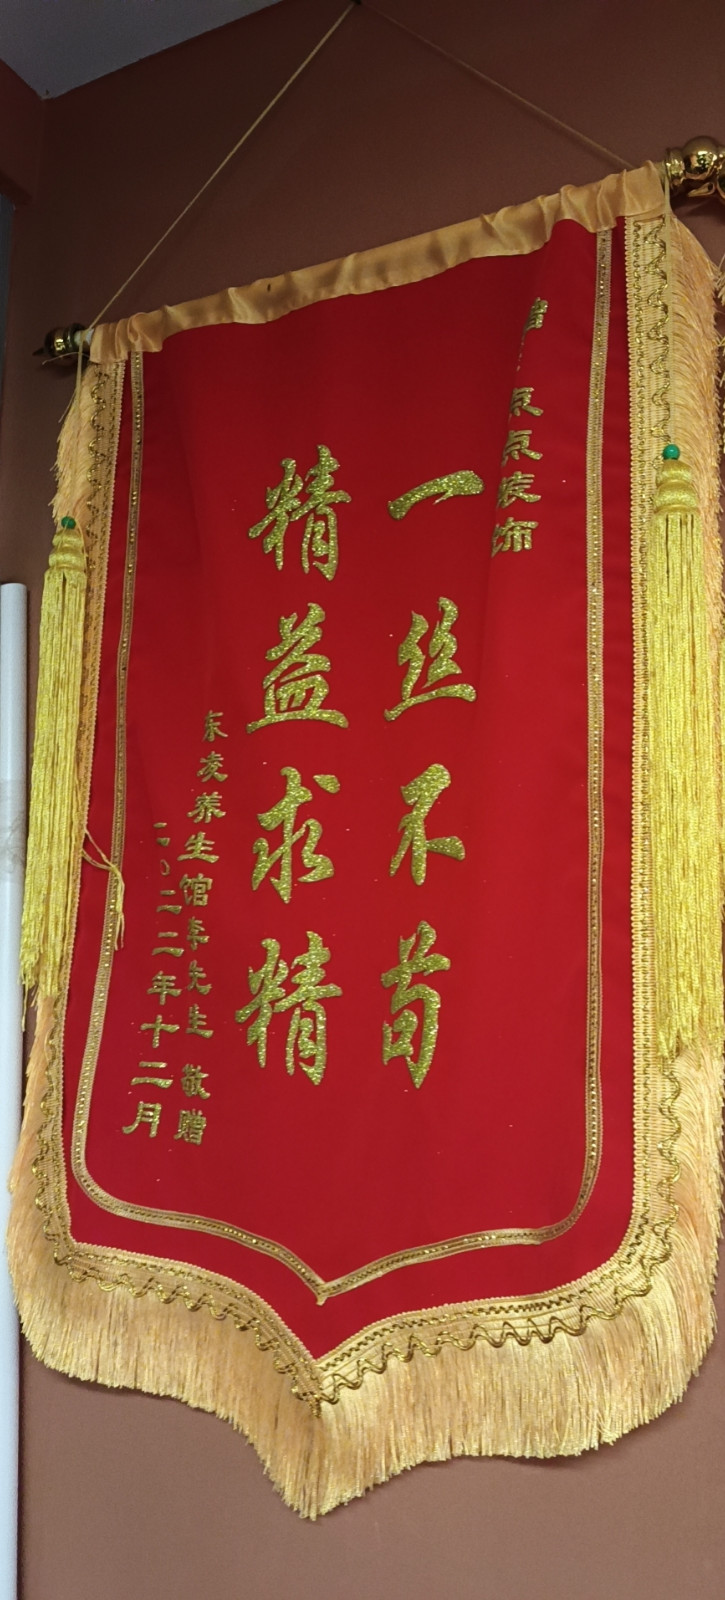 赠：点点装饰
一丝不苟
精益求精
东亥养生馆李先生 敬赠
二〇二二年十二月